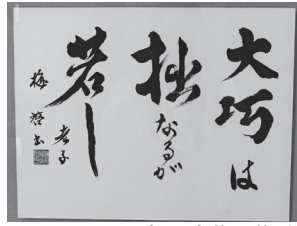 大巧は
拙なるが
若し
老子
梅啓书